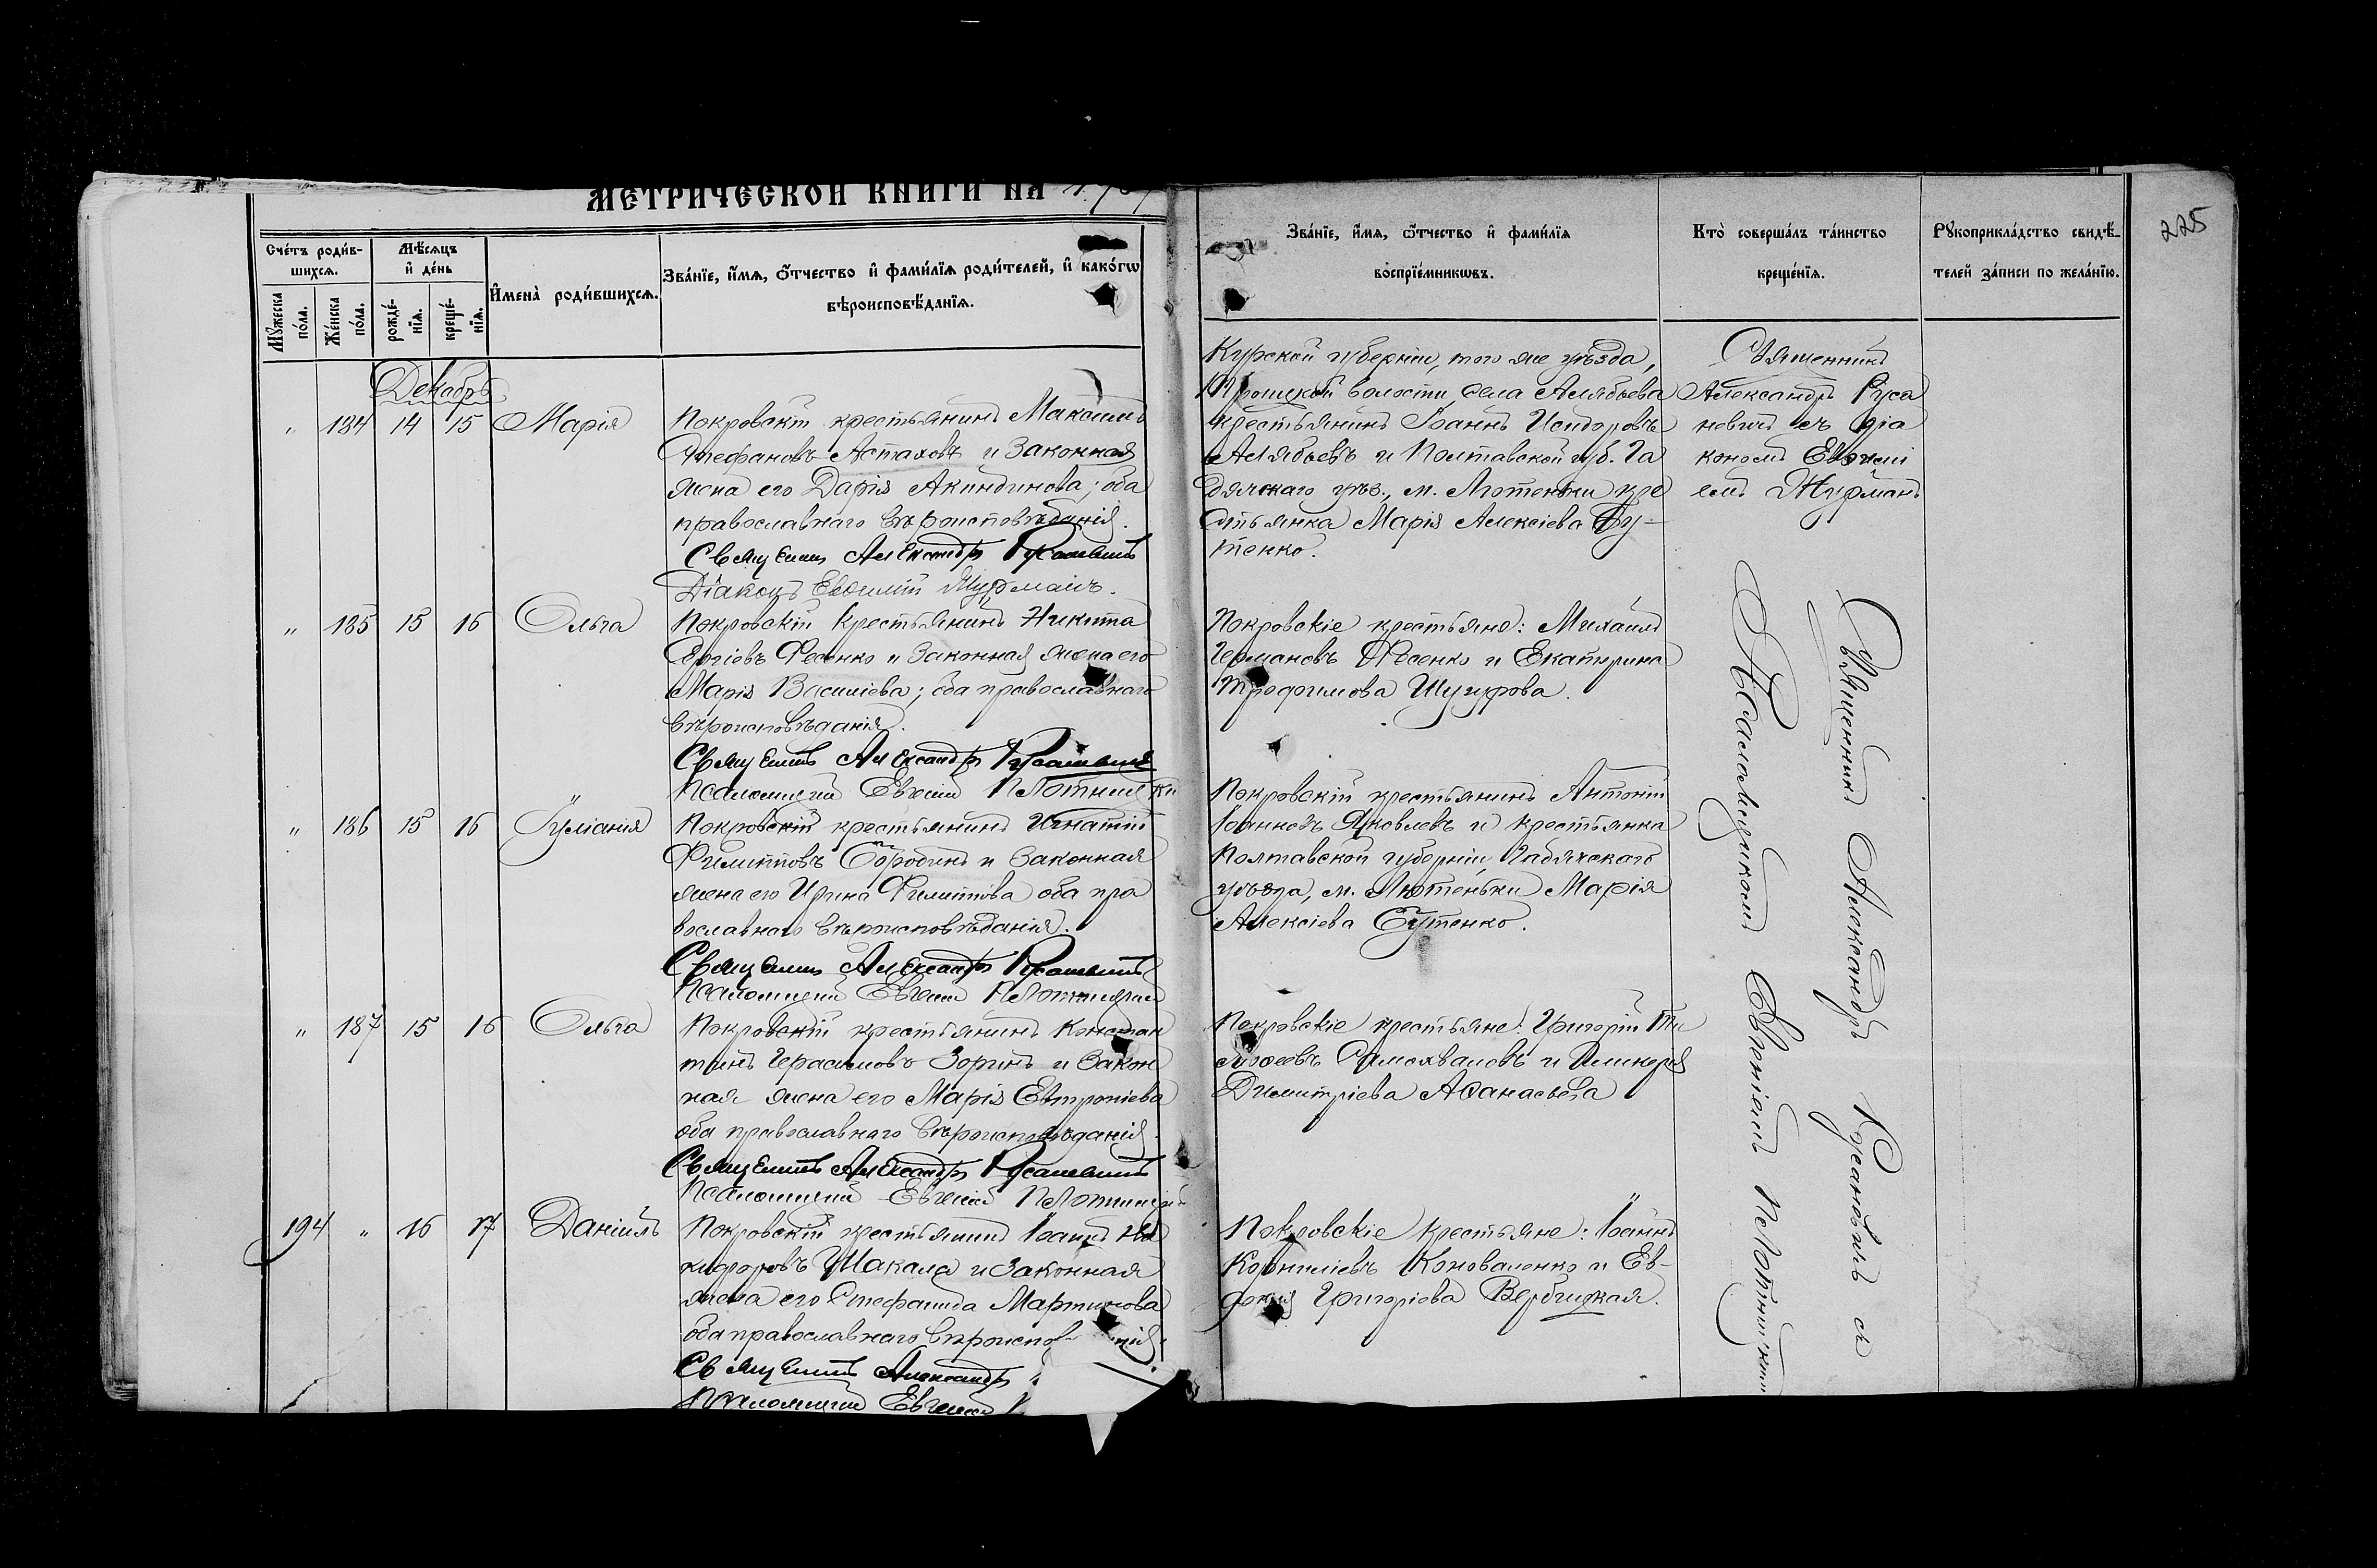 МЕТРИЧЕСКОЙ КНИГИ НА
225
Сче́тъ роди́в-
шихся.
Мѣ́сяцъ
и҆ де́нь
Мꙋ́жеска
по́ла.
Же́нска
по́ла.
рожде́-
нїѧ.
креще́-
нїѧ.
И҆мена̀ роди́вшихсѧ.
Зва́нїе, и҆́мѧ, ѻ҆́тчество и҆ фами́лїѧ роди́телей, и҆ како́гѡ
вѣроисповѣ́данїѧ.
Зва́нїе, и҆́мѧ, ѻ҆́тчество и҆ фами́лїѧ
воспрїе́мникѡвъ.
Кто̀ соверша́лъ та́инство
креще́нїѧ.
Рꙋкоприкла́дство свидѣ́-
телей за́писи по жела́нїю.
Декабрь
„ 184 14 15 Марія
Покровскій крестьянинъ Максимъ
Стефановъ Астаховъ и законная
жена его Дарія Акиндинова; оба
православнаго вѣроисповѣданія.
Священникъ Александръ Русановичъ
Діаконъ Евѳимій
Курской губерніи, того же уѣзда,
волости, села Алябьева
крестьянинъ Іоаннъ Исидоровъ
Алябьевъ и Полтавской губ. Га
дячскаго уѣз., м. Лютеньки кре
стьянка Марія Алексіева Бу-
тенко.
Священникъ
Александръ Руса
новичъ съ діа
кономъ Евѳимі
емъ
„ 185 15 16 Ольга
Покровскій крестьянинъ Никита
Сергіевъ Фесенко и законная жена его
Марія Василіева; оба православнаго
вѣроисповѣданія.
Священникъ Александръ Русановичъ
Псаломщикъ Евгеній Плотницкій
Покровскіе крестьяне: Михаилъ
Германовъ Фесенко и Екатерина
Трофимова
„ 186 15 16 Іуліанія
Покровскій крестьянинъ Игнатій
Филипповъ и законная
жена его Ирина Филиппова оба пра
вославнаго вѣроисповѣданія.
Священникъ Александръ Русановичъ
Псаломщикъ Евгеній Плотницкій
Покровскій крестьянинъ Антоній
Іоанновъ Яковлевъ и крестьянка
Полтавской губерніи Гадячскаго
уѣзда, м. Лютеньки Марія
Алексіева Бутенко.
„ 187 15 16 Ольга
Покровскій крестьянинъ Констан
тинъ Герасимовъ Зоринъ и закон
ная жена его Марія Евтропіева
оба православнаго вѣроисповѣданія.
Священникъ Александръ Русановичъ
Псаломщикъ Евгеній Плотницкій
Покровскіе крестьяне: Григорій Ти
моѳеевъ Самохваловъ и Гликерія
Димитріева Аѳанасьева
194 „ 16 17 Даніилъ
Покровскій крестьянинъ Іоаннъ Ни
кифоровъ Шакала и законная
жена его Стефанида Мартинова
оба православнаго вѣроиспов нія.
Священникъ Александръ
Псаломщикъ Евгеній
Покровскіе крестьяне: Іоаннъ
Корниліевъ Коноваленко и Ев-
докія Григоріева Вербицкая.
Священникъ Александръ Русановичъ съ
Псаломщикомъ Евгеніемъ Плотницкимъ